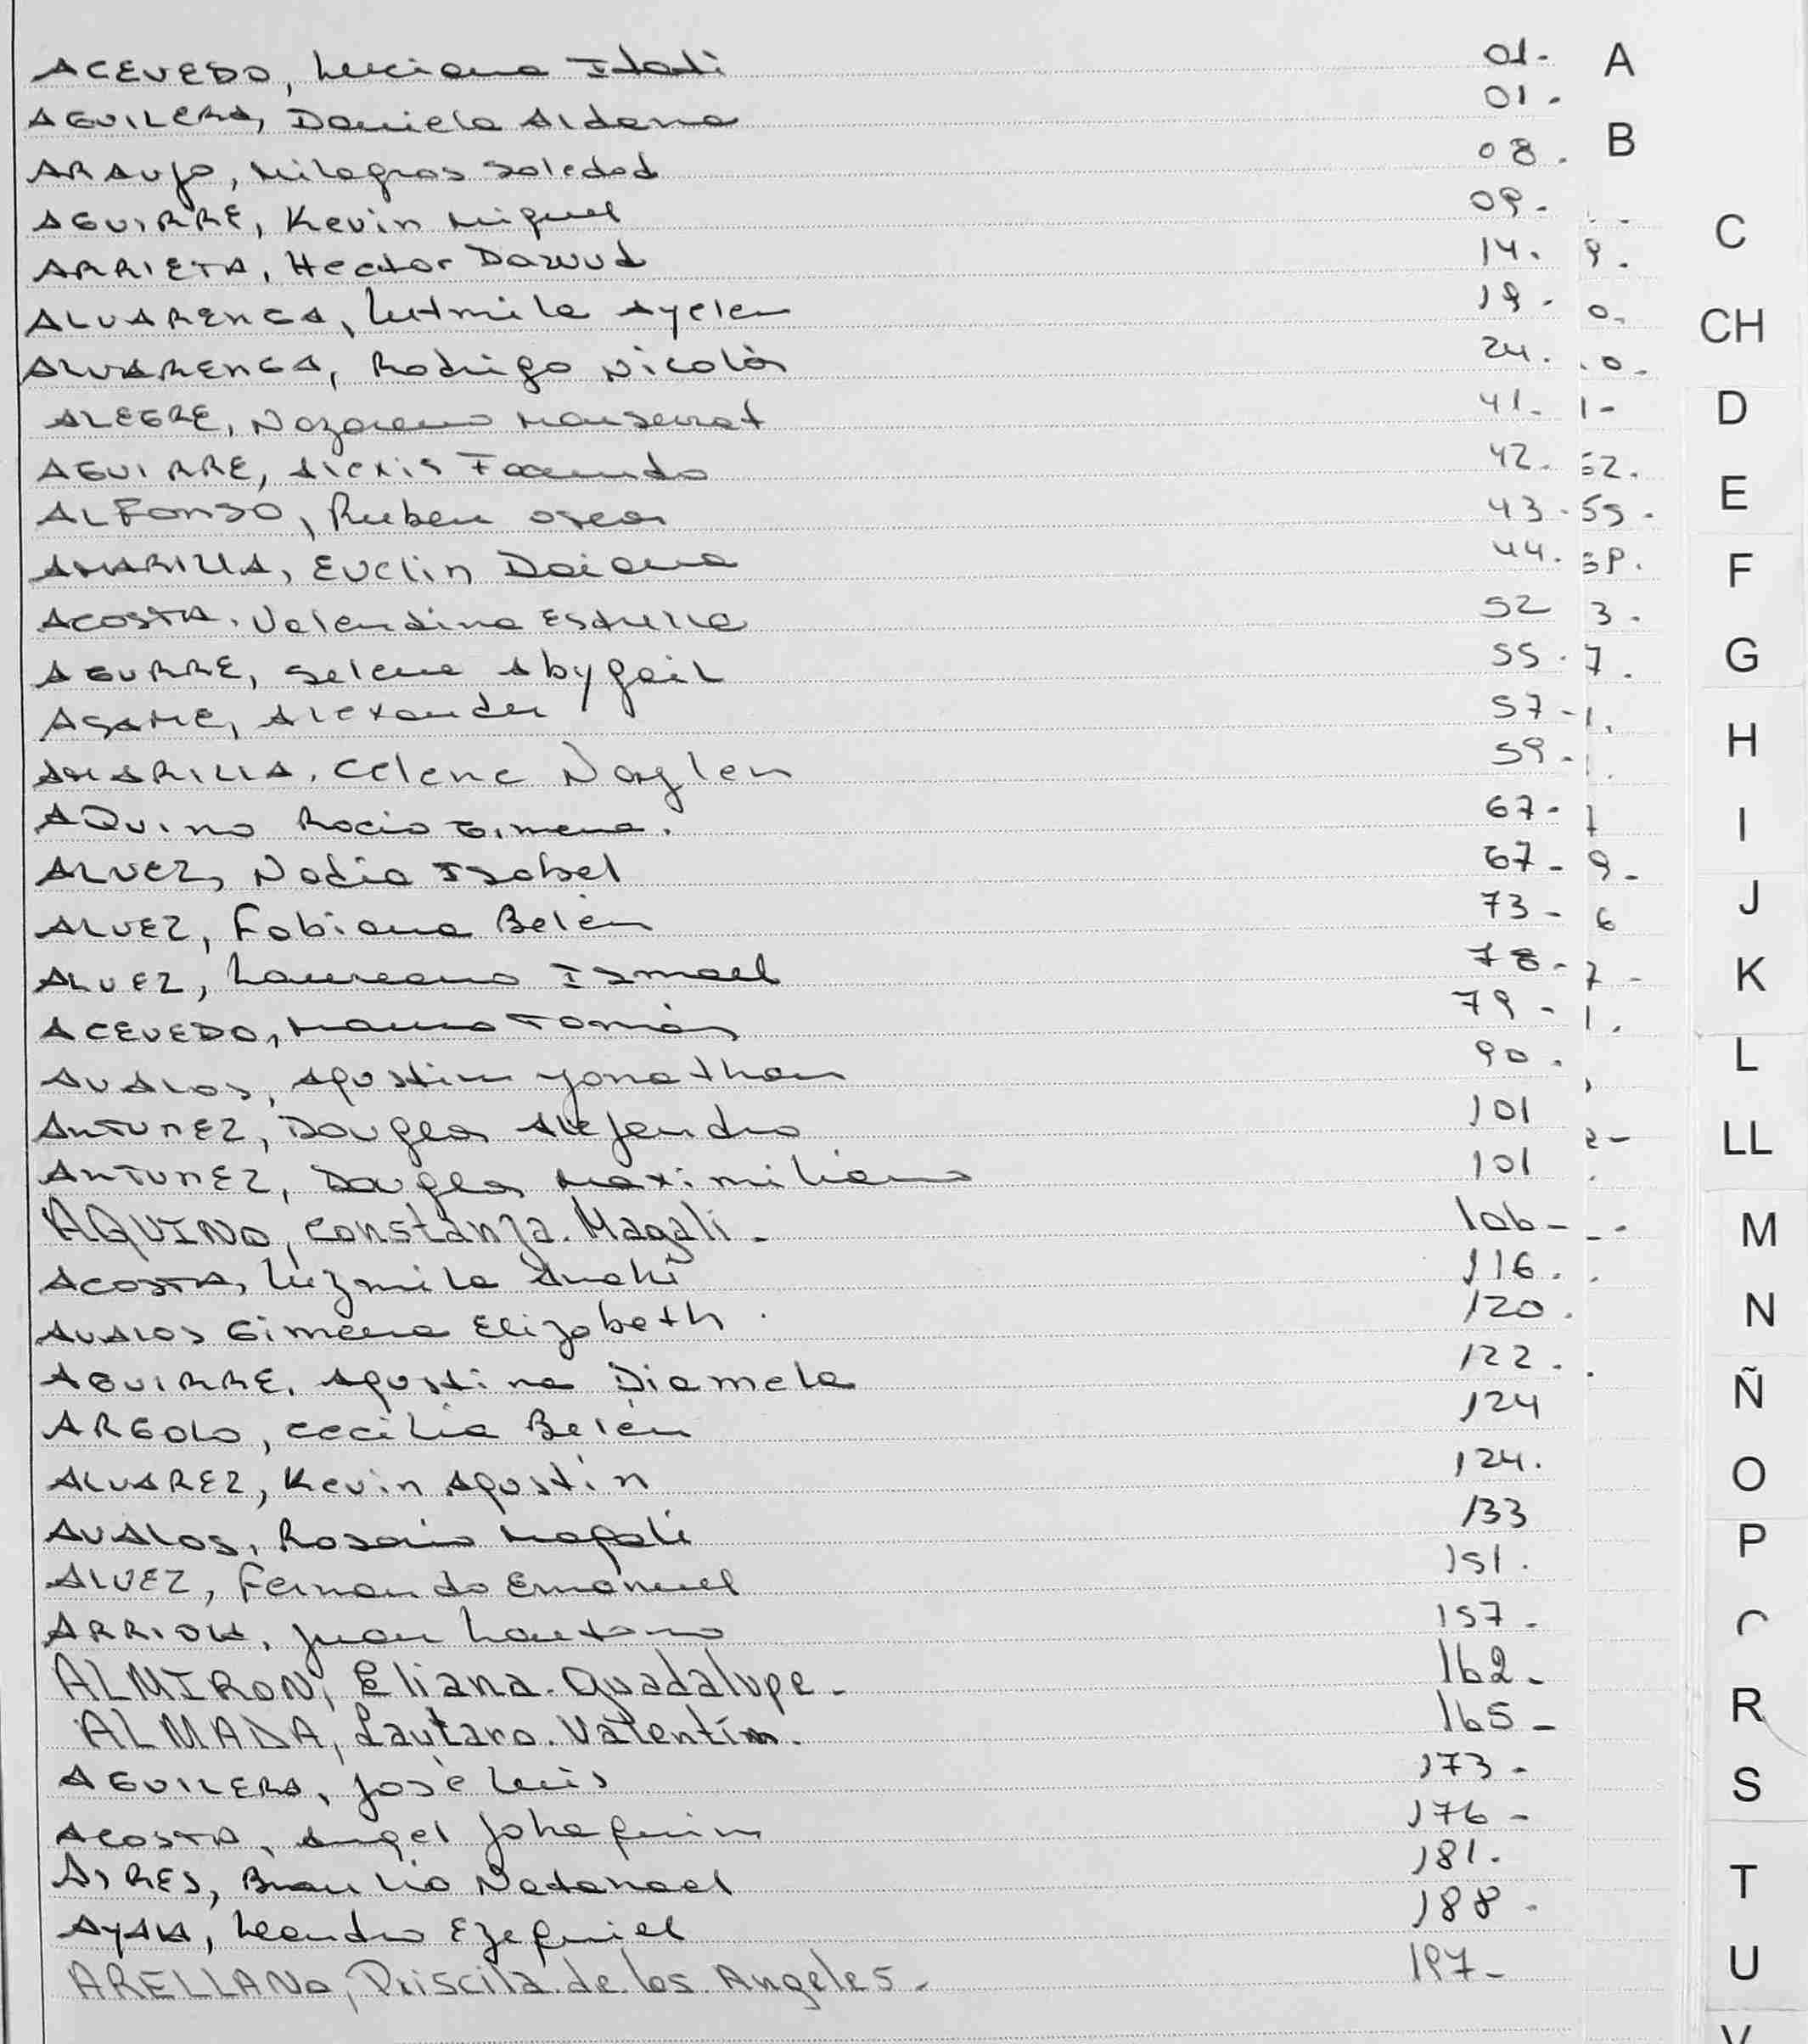 ACEVEDO, Luciana Itatí 01.
AGUILERA, Daniela Aldana 01.
ARAUJO, Milagros Soledad 08.
AGUIRRE, Kevin Miguel 09.
ARRIETA, Hector David 14.
ALVARENGA, Ludmila Ayelen 19.
ALVARENGA, Rodrigo Nicolás 24.
ALEGRE, Nazareno Monserrat 41.
AGUIRRE, Alexis Facundo 42.
ALFONSO, Ruben Oscar 43.
AMARILLA, Evelin Daiana 44.
ACOSTA. Valentina Estrella 52
AGURRE, Selene Abygail 55.
AGAME, Alexander 57-
AMARILLA. Celene Naylen 59-
AQuino Rocio Gimena. 67-
ALVEZ, Nadia Isabel 67-
ALVEZ, Fabiana Belén 73-
ALVEZ, Laureano Ismael 78-
ACEVEDO, Mauro Tomás 79-
AVALOS, Agustin Yonathan 90.
ANTUNEZ, Douglas Alejandro 101
ANTUNEZ, Douglas Maximiliano 101
AQUINO, Constanza. Magali. 106-
ACOSTA, Luzmila Anahí 116.
AVALOS Gimena Elizabeth. 120.
AGUIRRE, Agustina Diamela 122.
ARGOLO, Cecilia Belén 124
ALVAREZ, Kevin Agustín 124.
AVALOS, Rosario Magali 133
ALVEZ, Fernando Emanuel 151.
ARRIOLA, Juan Lautaro 157.
ALMIRON, Eliana. Guadalupe- 162-
ALMADA, Lautaro. Valentín. 165-
AGUILERA, José Luis 173-
ACOSTA, Angel 176-
AIRES, Braulio Natanael 181.
AYALA, Leandro Ezequiel 188.
ARELLANO, Priscila de los Angeles- 197-
A
B
C
CH
D
E
F
G
H
I
J
K
L
LL
M
N
Ñ
O
P
R
S
T
U
V